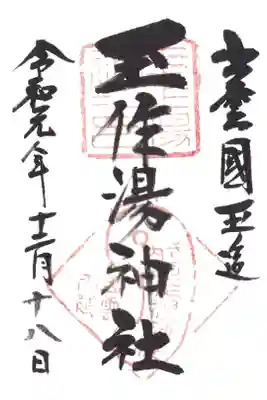 出雲國玉造
玉作湯神社
令和元年十二月十八日